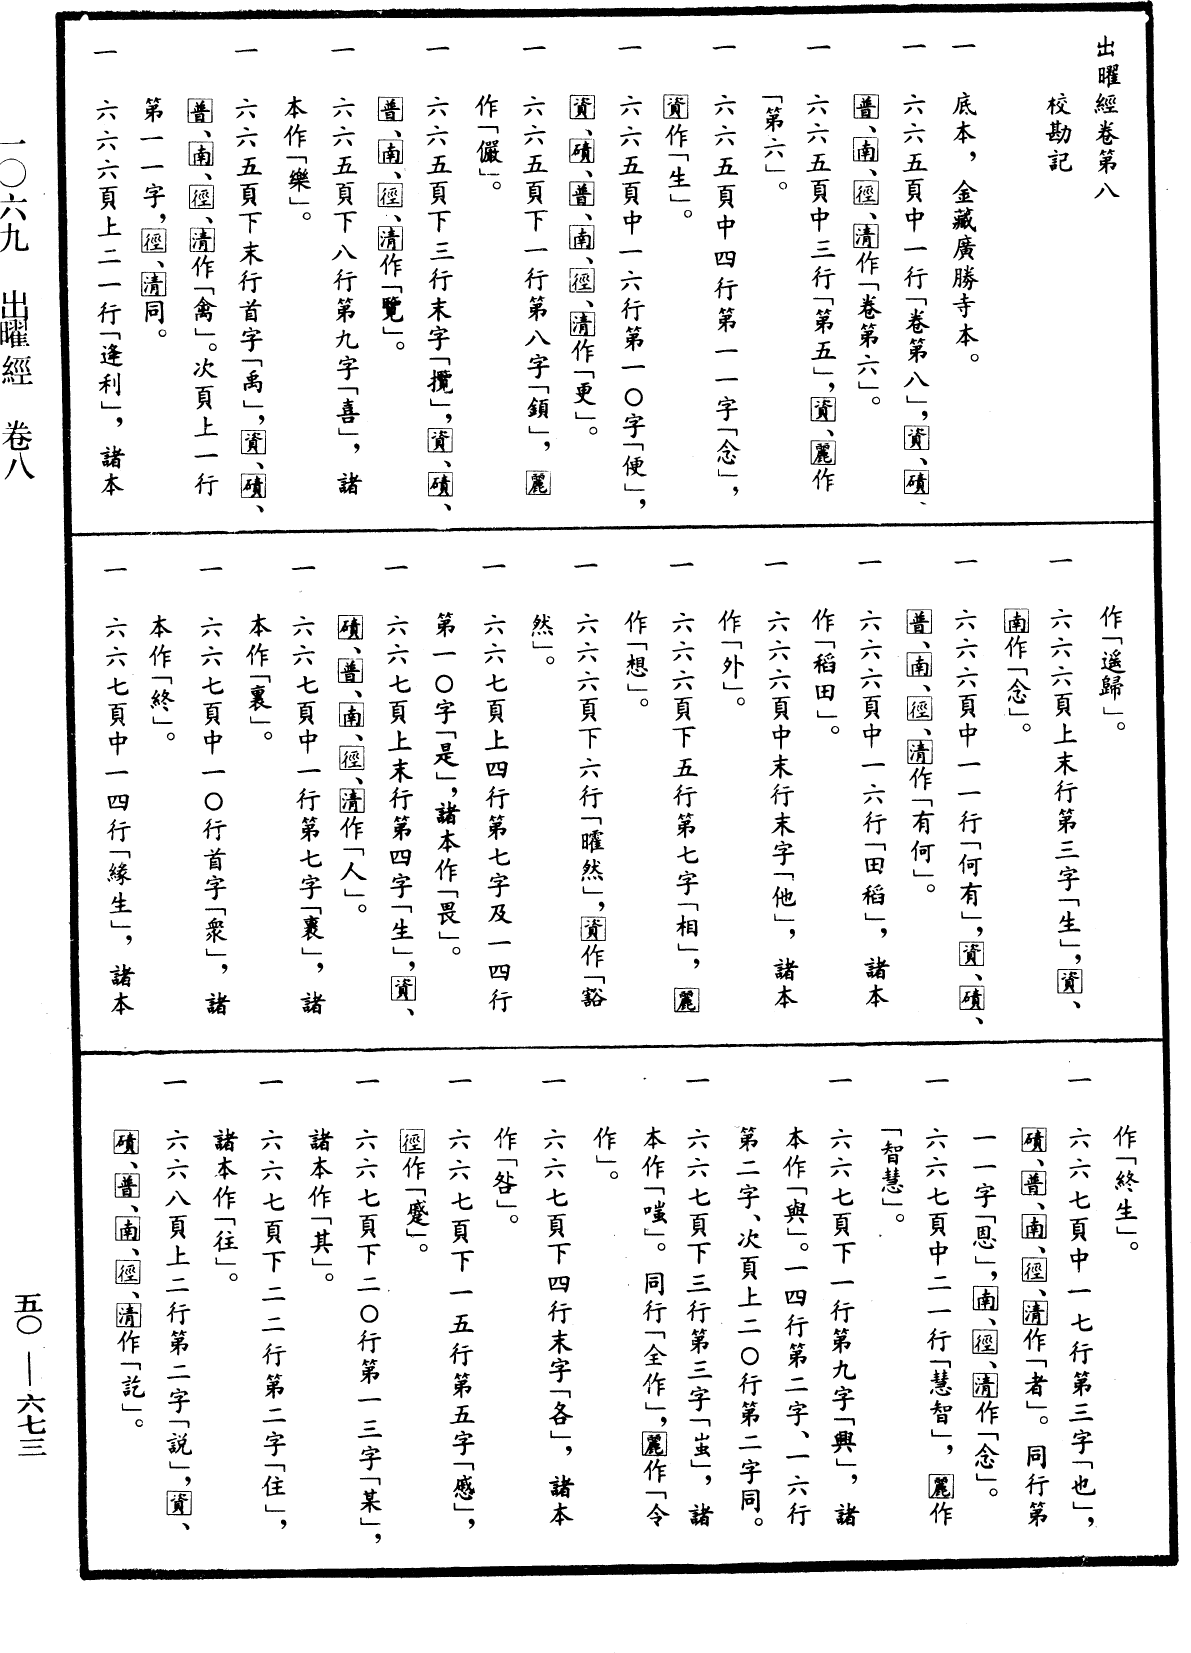 出曜經卷第八
校勘記
一　底本，金藏廣勝寺本。
一　六六五頁中一行「卷第八」，資、磧、
普、南、徑、清作「卷第六」。
一　六六五頁中三行「第五」，資、麗作
「第六」。
一　六六五頁中四行第一一字「念」，
資作「生」。
一　六六五頁中一六行第一〇字「便」，
資、磧、普、南、徑、清作「更」。
一　六六五頁下一行第八字「顉」，麗
作「儼」。
一　六六五頁下三行末字「攬」，資、磧、
普、南、徑、清作「覽」。
一　六六五頁下八行第九字「喜」，諸
本作「樂」。
一　六六五頁下末行首字「禹」，資、磧、
普、南、徑、清作「禽」。次頁上一行
第一一字，徑、清同。
一　六六六頁上二一行「逢利」，諸本
作「遥歸」。
一　六六六頁上末行第三字「生」，資、
南作「念」。
一　六六六頁中一一行「何有」，資、磧、
普、南、徑、清作「有何」。
一　六六六頁中一六行「田稻」，諸本
作「稻田」。
一　六六六頁中末行末字「他」，諸本
作「外」。
一　六六六頁下五行第七字「相」，麗
作「想」。
一　六六六頁下六行「曜然」，資作「豁
然」。
一　六六七頁上四行第七字及一四行
第一〇字「是」，諸本作「畏」。
一　六六七頁上末行第四字「生」，資、
磧、普、南、徑、清作「人」。
一　六六七頁中一行第七字「裏」，諸
本作「裹」。
一　六六七頁中一〇行首字「衆」，諸
本作「終」。
一　六六七頁中一四行「緣生」，諸本
作「終生」。
一　六六七頁中一七行第三字「也」，
磧、普、南、徑、清作「者」。同行第
一一字「恩」，南、徑、清作「念」。
一　六六七頁中二一行「慧智」，麗作
「智慧」。
一　六六七頁下一行第九字「興」，諸
本作「與」。一四行第二字、一六行
第二字、次頁上二〇行第二字同。
一　六六七頁下三行第三字「蚩」，諸
本作「嗤」。同行「全作」，麗作「令
作」。
一　六六七頁下四行末字「各」，諸本
作「咎」。
一　六六七頁下一五行第五字「感」，
徑作「蹙」。
一　六六七頁下二〇行第一三字「某」，
諸本作「其」。
一　六六七頁下二二行第二字「住」，
諸本作「往」。
一　六六八頁上二行第二字「説」，資、
磧、普、南、徑、清作「訖」。
一〇六九　出曜經　卷八
五〇—六七三